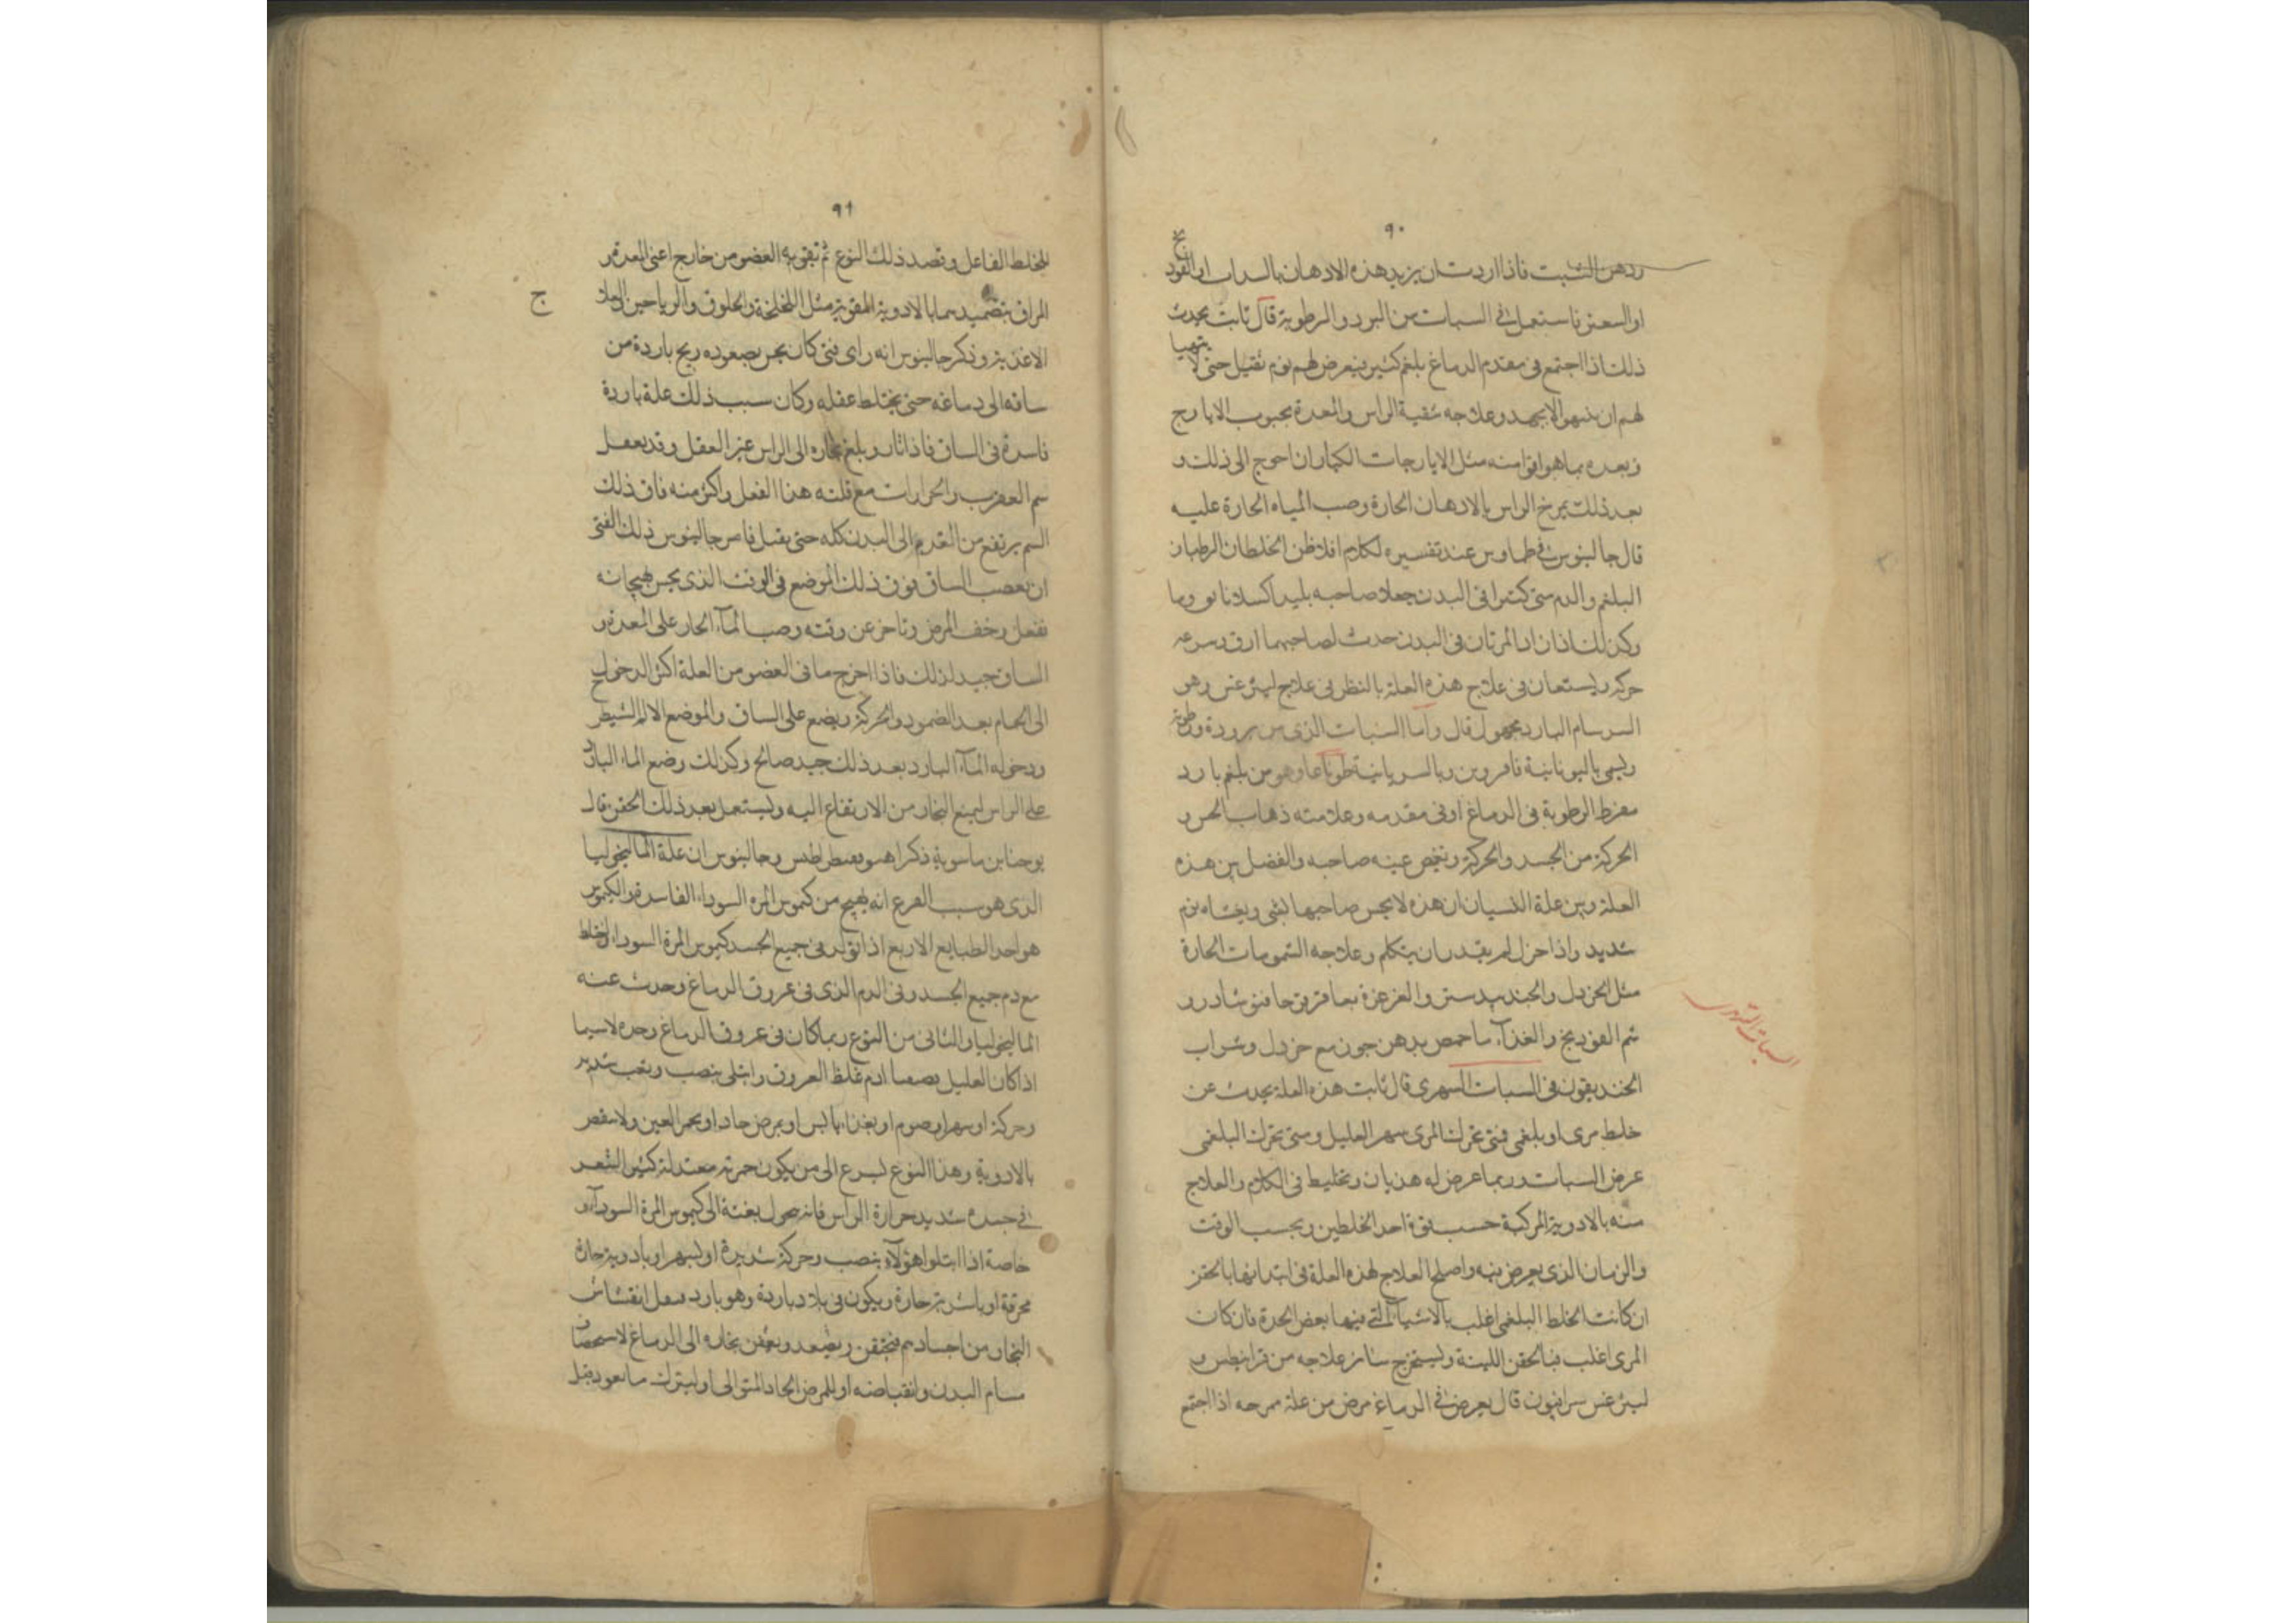 ٩٠
ودهن الشبت فاذا اردت ان يزيد هذه الادهان بالسداب او الفود
نج
او السعتر فاستعمل في السبات من البرد والرطوبة قال ثابت يحدث
ذلك اذا اجتمع في مقدم الدماغ بلغم كثير فيعرض لهم نوم ثقيل حتى لا يتهيا
لهم ان ينبهوا الا بجهد وعلاجه تنقية الراس والمعدة بحبوب الايارج
وبعده بما هو اقوا منه مثل الايارجات الكبار ان احوج الى ذلك و
بعد ذلك يمرخ الراس بالادهان الحارة وصب المياه الحارة عليه
قال جالينوس في طماوس عند تفسيره لكلام افلاطن الخلطان الرطبان
البلغم والدم متى كثرا في البدن جعلا صاحبه بليدا كسلانا
وكذلك اذا زاد المرتان في البدن حدث لصاحبهما ارق وسرعة
حركة ويستعان في علاج هذه العلة بالنظر في علاج ليثرغس وهو
السرسام البارد مجهول قال واما السبات الذي من برودة ورطوبة
ويسمى باليونانية وبالسريانية وهو من بلغم بارد
مفرط الرطوبة في الدماغ او في مقدمه وعلامته ذهاب الحس و
الحركة من الجسد والحركة وتغمض عينه صاحبه والفصل بين هذه
العلة وبين علة النسيان ان هذه لا يحس صاحبها بشي ويغشاه نوم
شديد واذا حرك لم يقدر ان يتكلم وعلاجه الشمومات الحارة
مثل الخردل والجندبيدستر والغرغرة بعاقرقرحا ونوشادر و
شم الفوديج والغذاء ماحمص بدهن جوز مع خردل وشراب
الخنديقون في السبات السهري قال ثابت هذه العلة يحدث عن
السبات السهري
خلط مري او بلغمي فمتى تحرك المري سهر العليل ومتى تحرك البلغمي
عرض السبات وربما عرض له هذيان وتخليط في الكلام والعلاج
منه بالادوية المركبة حسب قوة احد الخلطين وبحسب الوقت
والزمان الذي يعرض فيه واصلح العلاج لهذه العلة في ابتدائها بالحقن
ان كانت الخلط البلغمي اغلب بالاشياء التي فيها بعض الحدة فان كان
المري اغلب فبالحقن اللينة ويستخرج سائر علاجه من قرانيطس و
ليثرغس سرافيون قال يعرض في الدماغ مرض من علة ممرحه اذا اجتمع
٩١
للخلط الفاعل وقصد ذلك النوع ثم تقوية العضو من خارج اعني المعدة و
المراق بتضميدهما بالادوية المقوية مثل اللخلخة والخلوق والرياحين
ج
الاغذية وذكر جالينوس انه راى فتى كان يحس بصعوده ريح باردة من
ساقه الى دماغه حتى يختلط عقله وكان سبب ذلك علة باردة
فاسدة في الساق فاذا ثار وبلغ بخاره الى الراس غير العقل وقد يفعل
سم العقرب والحرارات مع قلته هذا الفعل واكثر منه فان ذلك
السم يرتفع من القدم الى البدن كله حتى يقتل فامر جالينوس ذلك الفتى
ان يعصب الساق فوق ذلك الموضع في الوقت الذي يحس هيجانه
ففعل وخف المرض وتاخر عن وقته وصب الماء الحار على المعدة و
الساق جيد لذلك فاذا اخرج ما في العضو من العلة اكثر الدخول
الى الحمام بعد الضمود والحركة ويضع على الساق والموضع الالم الشيطر
ودخوله الماء البارد بعد ذلك جيد صالح وكذلك وضع الماء البارد
على الراس ليمنع البخار من الارتفاع اليه ويستعمل بعد ذلك الحقن قال
يوحنا بن ماسوية ذكر وجالينوس ان علة الماليخوليا
الذي هو سبب الفزع انه يهيج من كيموس المرة السوداء الفاسدة والكيموس
هو احد الطبايع الاربع اذا تولد في جميع الجسد كيموس المرة السوداء واختلط
مع دم جميع الجسد وفي الدم الذي في عروق الدماغ وحدث عنه
الماليخوليا والثاني من النوع ربما كان في عروق الدماغ وحده لاسيما
اذا كان العليل غلظ العروق وابتلى بنصب وتعب شديد
وحركة او سهر او صوم او بغذاء يابس او بمرض حاد او بحمر العين
بالادوية وهذا النوع يسرع الى من يكون حمرته معتدلة كثير الشعر
في جسده شديد حرارة الراس فانه يحول بغتة الى كيموس المرة السوداء و
خاصة اذا ابتلوا هؤلاء بنصب وحركة شديدة او بسهر او بادوية حارة
محرقة او باشربة حارة ويكون في بلاد باردة وهو بارد انفشاش
البخار من اجسادهم فيحتقن ويصعد ويعفن بخاره الى الدماغ
مسام البدن وانقباضه او للمرض الحاد المتوالي او ليترك ما يعود